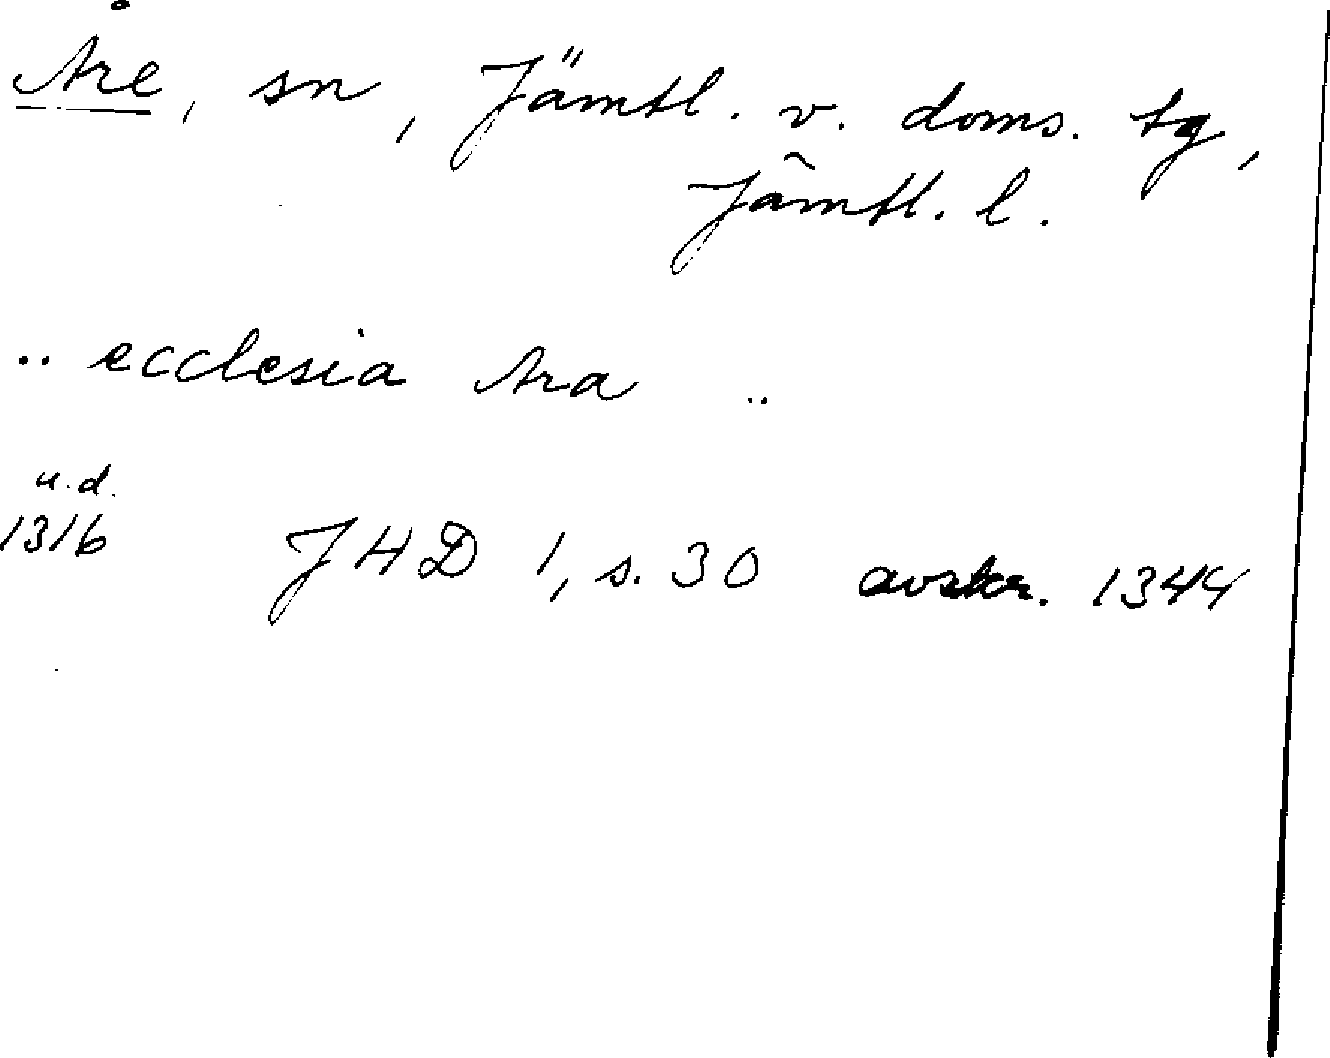 Åre, sn, Jämtl. v. doms. tg,
Jämtl. l.
.. ecclesia Ara ..
u.d.
1316 JHD 1, s. 30 avskr. 1344